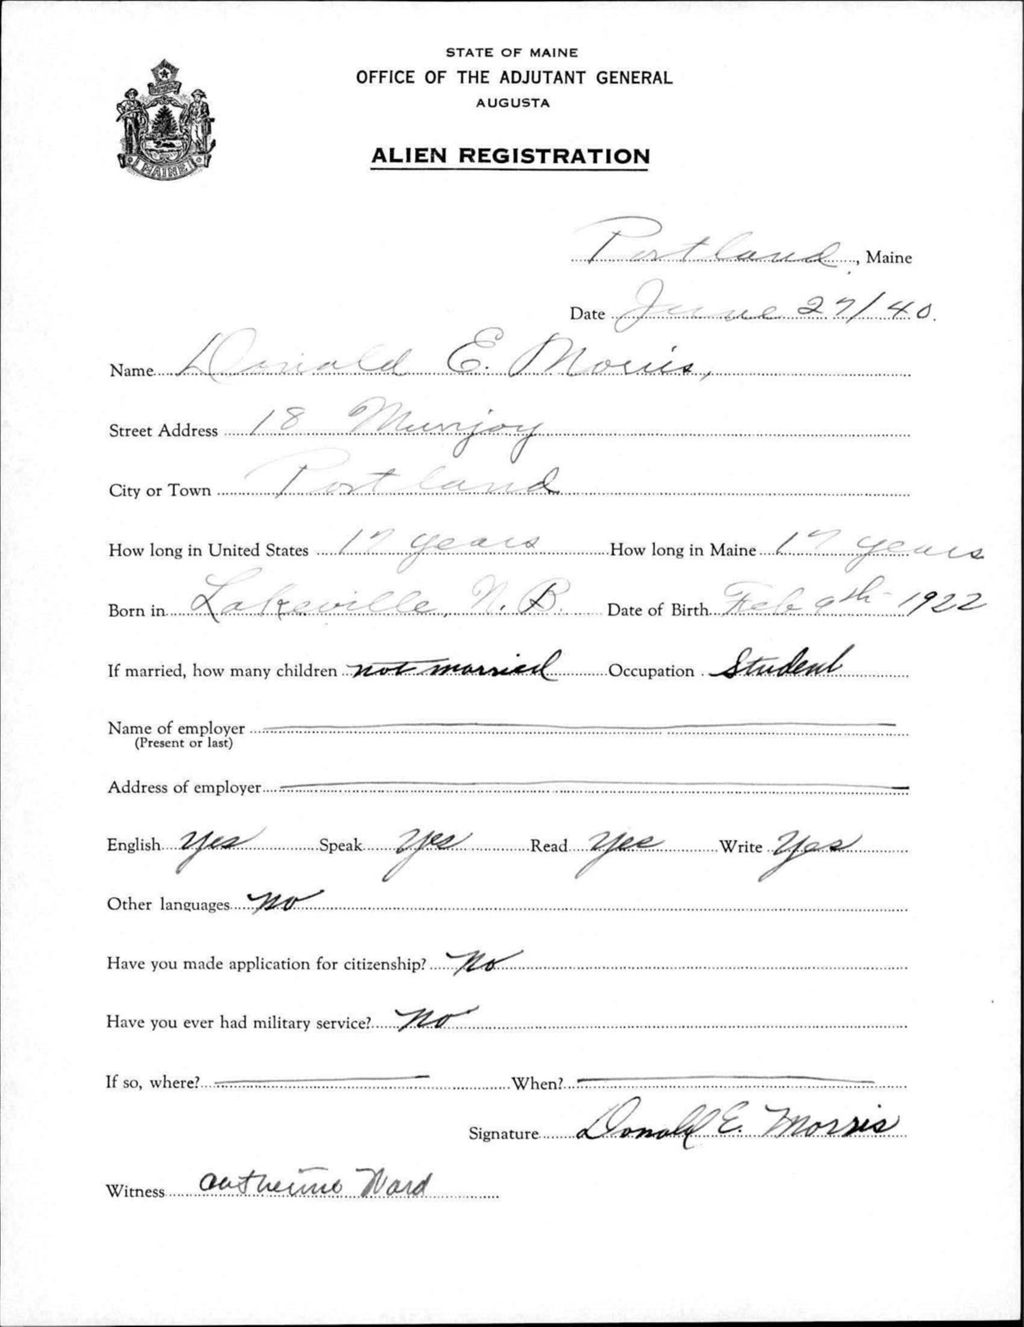 STATE OF MAINE
OFFICE OF THE ADJUTANT GENERAL
AUGUSTA
ALIEN REGISTRATION
MAINE
Portland, Maine
Date June 27/40.
Name Donald E. Morris,
Street Address 18 Munjoy
City or Town Portland
How long in United States 17 years How long in Maine 17 years
Born in Lakeville, N. B. Date of Birth Feb 9th- 1922
If married, how many children not married Occupation Student
Name of employer
(Present or last)
Address of employer
English Yes Speak Yes Read Yes Write Yes
Other languages No
Have you made application for citizenship? No
Have you ever had military service? No
If so, where? When?
Signature Donald E. Morris
Witness Catherine Ward